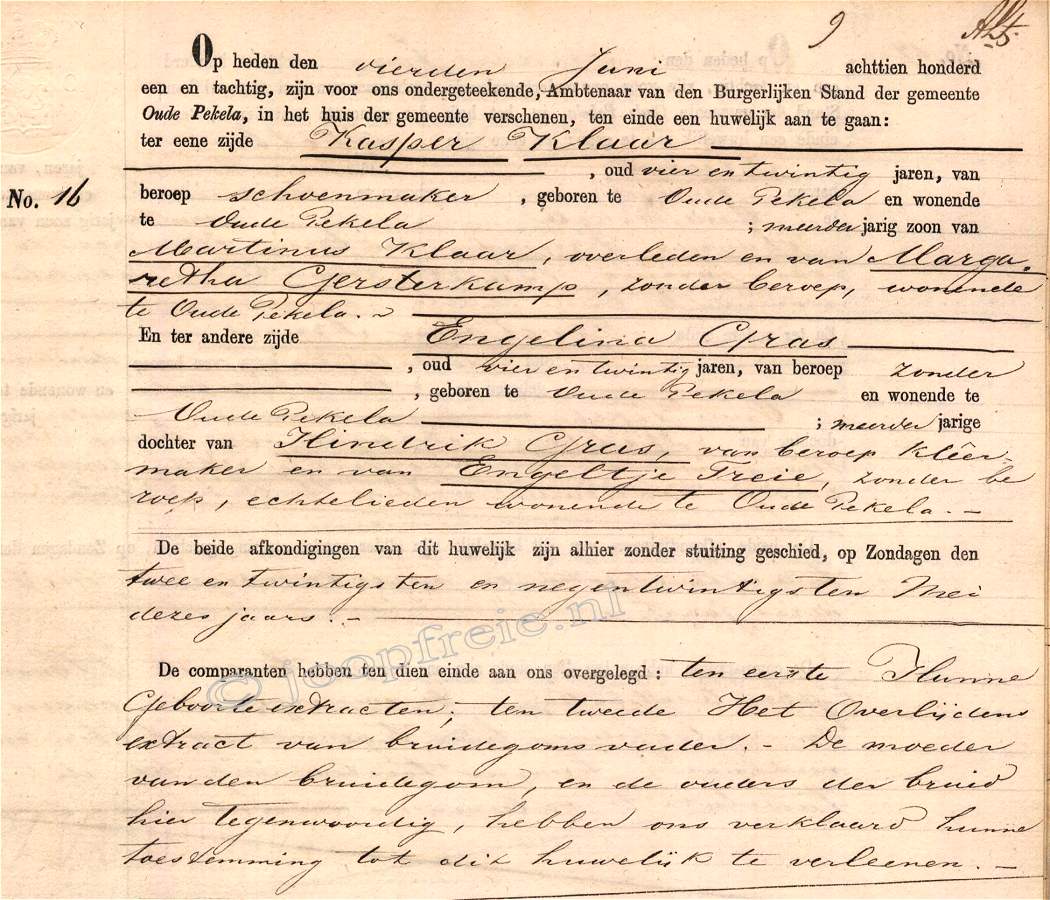 9
Op heden den vierden Juni achttien honderd
een en tachtig, zijn voor ons ondergeteekende, Ambtenaar van den Burgerlijken Stand der gemeente
Oude Pekela, in het huis der gemeente verschenen, ten einde een huwelijk aan te gaan:
ter eene zijde Kasper Klaar
, oud vier en twintig jaren, van
No. 16
beroep schoenmaker, geboren te Oude Pekela en wonende
te Oude Pekela ; meerder jarig zoon van
Martinus Klaar, overleden en van Marga-
retha Gersterkamp, zonder beroep, wonende
te Oude Pekela. ~
En ter andere zijde Engelina Gras
, oud vier en twintig jaren, van beroep zonder
, geboren te Oude Pekela en wonende te
Oude Pekela ; meerder jarige
dochter van Hindrik Gras, van beroep kleêr-
maker en van Engeltje Freie, zonder be
roep, echtelieden wonende te Oude Pekela. -
De beide afkondigingen van dit huwelijk zijn alhier zonder stuiting geschied, op Zondagen den
twee en twintigsten en negentwintigsten Mei
dezes jaars. -
© joopfreie.nl
De comparanten hebben ten dien einde aan ons overgelegd: ten eerste Hunne
Geboorte extracten; ten tweede Het Overlijdens
extract van bruidegoms vader. - De moeder
van den bruidegom, en de ouders der bruid
hier tegenwoordig, hebben ons verklaard hunne
toestemming tot dit huwelijk te verleenen. -